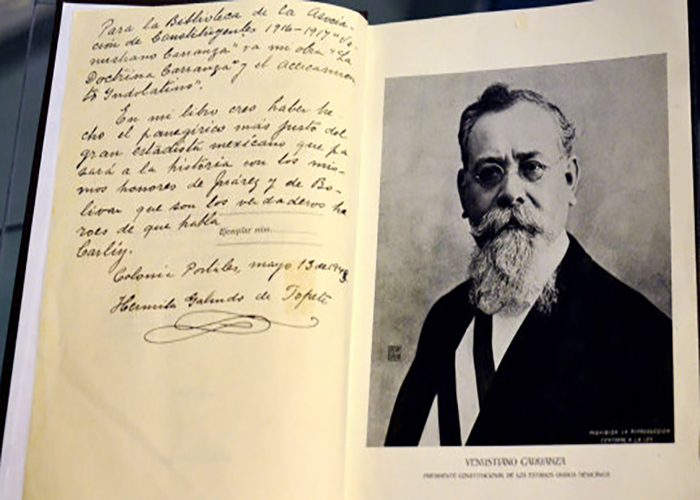 Para la Biblioteca de la Asocia-
ción de Constituyentes 1916-1917 "Ve-
nustiano Carranza" va mi obra "La
Doctrina Carranza" y el Acercamien
to Indolatino".
En mi libro creo haber he-
cho el panegírico más justo del
gran estadista mexicano que pa
sará a la historia con los mis-
mos honores de Juárez y de Bo-
livar que son los verdaderos hé
roes de que habla
Ejemplar núm.
Carlyy.
Colonia Portales, mayo 13 de
Hermila Galindo de Topete
PROHIBIDA LA REPRODUCCION
CONFORME A LA LEY
VENUSTIANO CARRANZA
PRESIDENTE CONSTITUCIONAL DE LOS ESTADOS UNIDOS MEXICANOS